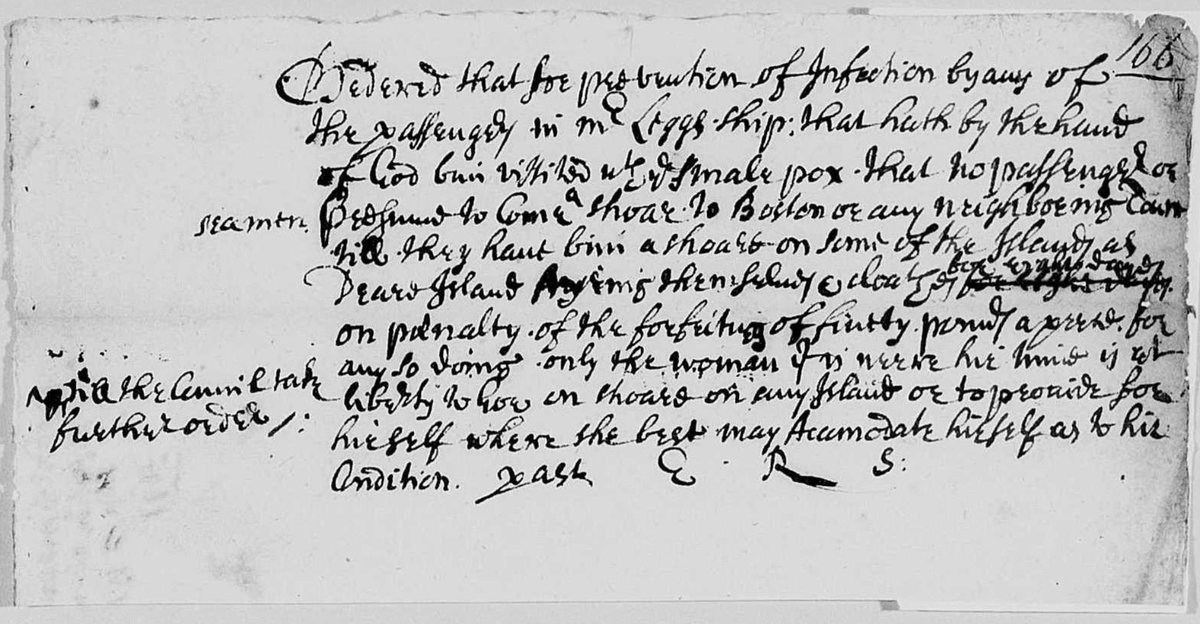 166
Ordered that for prevention of Infection by any of
the passengers in mr Leggs ship: that hath by the hand
of God bin visited wth ye smale pox. that no passenger or
seamen
presume to Come a shoar to Boston or any neighboring Towne
till they have bin a shoare on some of the Islands as
for eight dayes
Deare Island Ayring themselves & cloathes
on pænalty of the forfeiture of fivety pounds a peece for
any so doing only the woman yt is neere hir time is at
till the Council take
liberty to goe on shoare on any Island or to provide for
further order /:
hirself where she best may Acamodate hirself as to hir
Condition. past E R S: